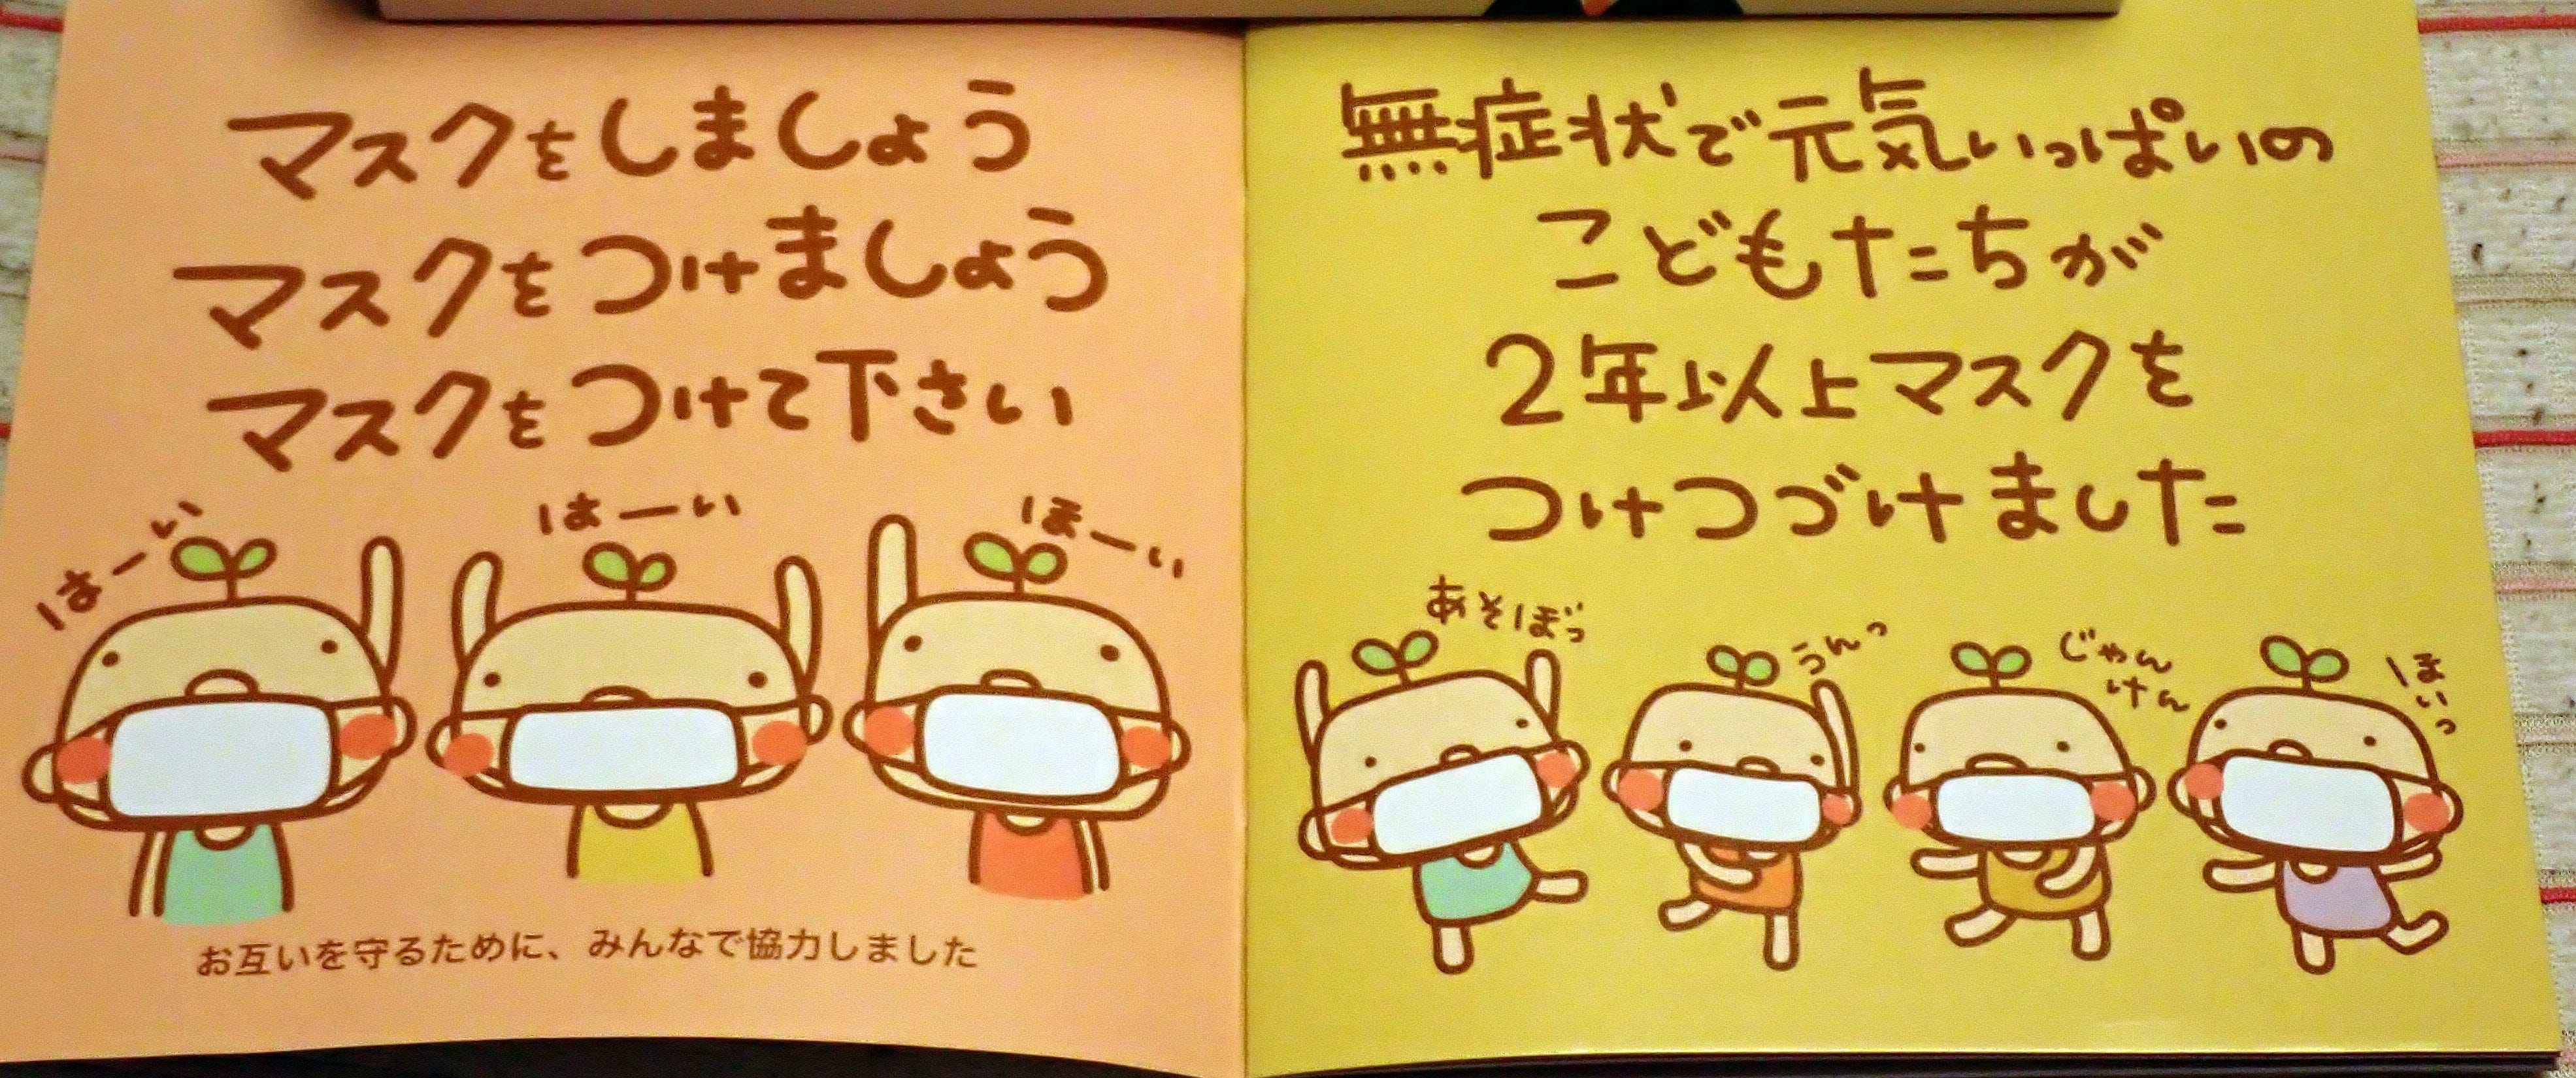 マスクをしましょう
マスクをつけましょう
マスクをつけて下さい
はーい
はーい
ほーい
お互いを守るために、みんなで協力しました
無症状で元気いっぱいの
こどもたちが
2年以上マスクを
つけつづけました
あそぼっ
うんっ
じゃん
けん
ほいっ